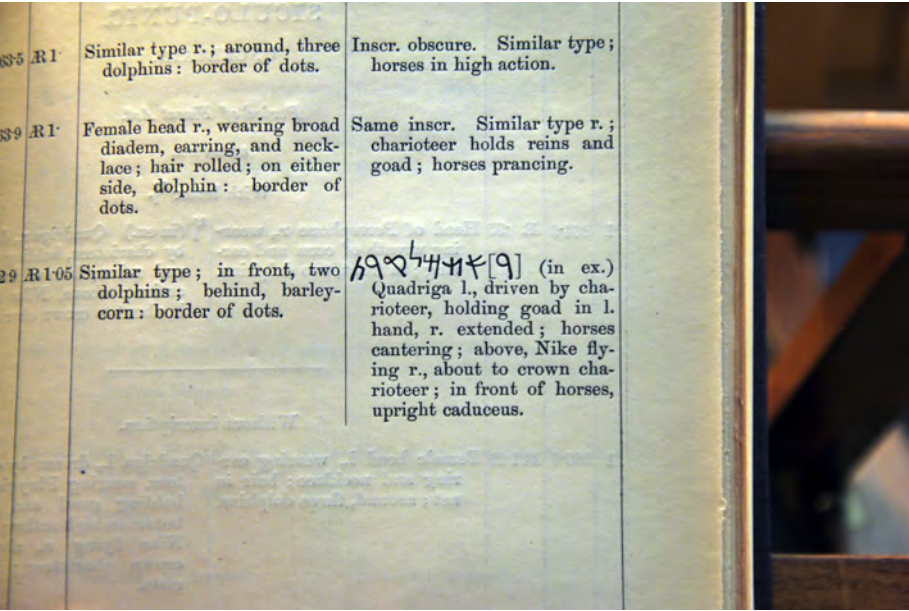 Æ 1·
Similar type r.; around, three
dolphins: border of dots.
Inscr. obscure. Similar type;
horses in high action.
Æ 1·
Female head r., wearing broad
diadem, earring, and neck-
lace; hair rolled; on either
side, dolphin: border of
dots.
Same inscr. Similar type r.;
charioteer holds reins and
goad; horses prancing.
Æ 1·05
Similar type; in front, two
dolphins; behind, barley-
corn: border of dots.
[𐤓]𐤔𐤌𐤋𐤒𐤓𐤕 (in ex.)
Quadriga l., driven by cha-
rioteer, holding goad in l.
hand, r. extended; horses
cantering; above, Nike fly-
ing r., about to crown cha-
rioteer; in front of horses,
upright caduceus.